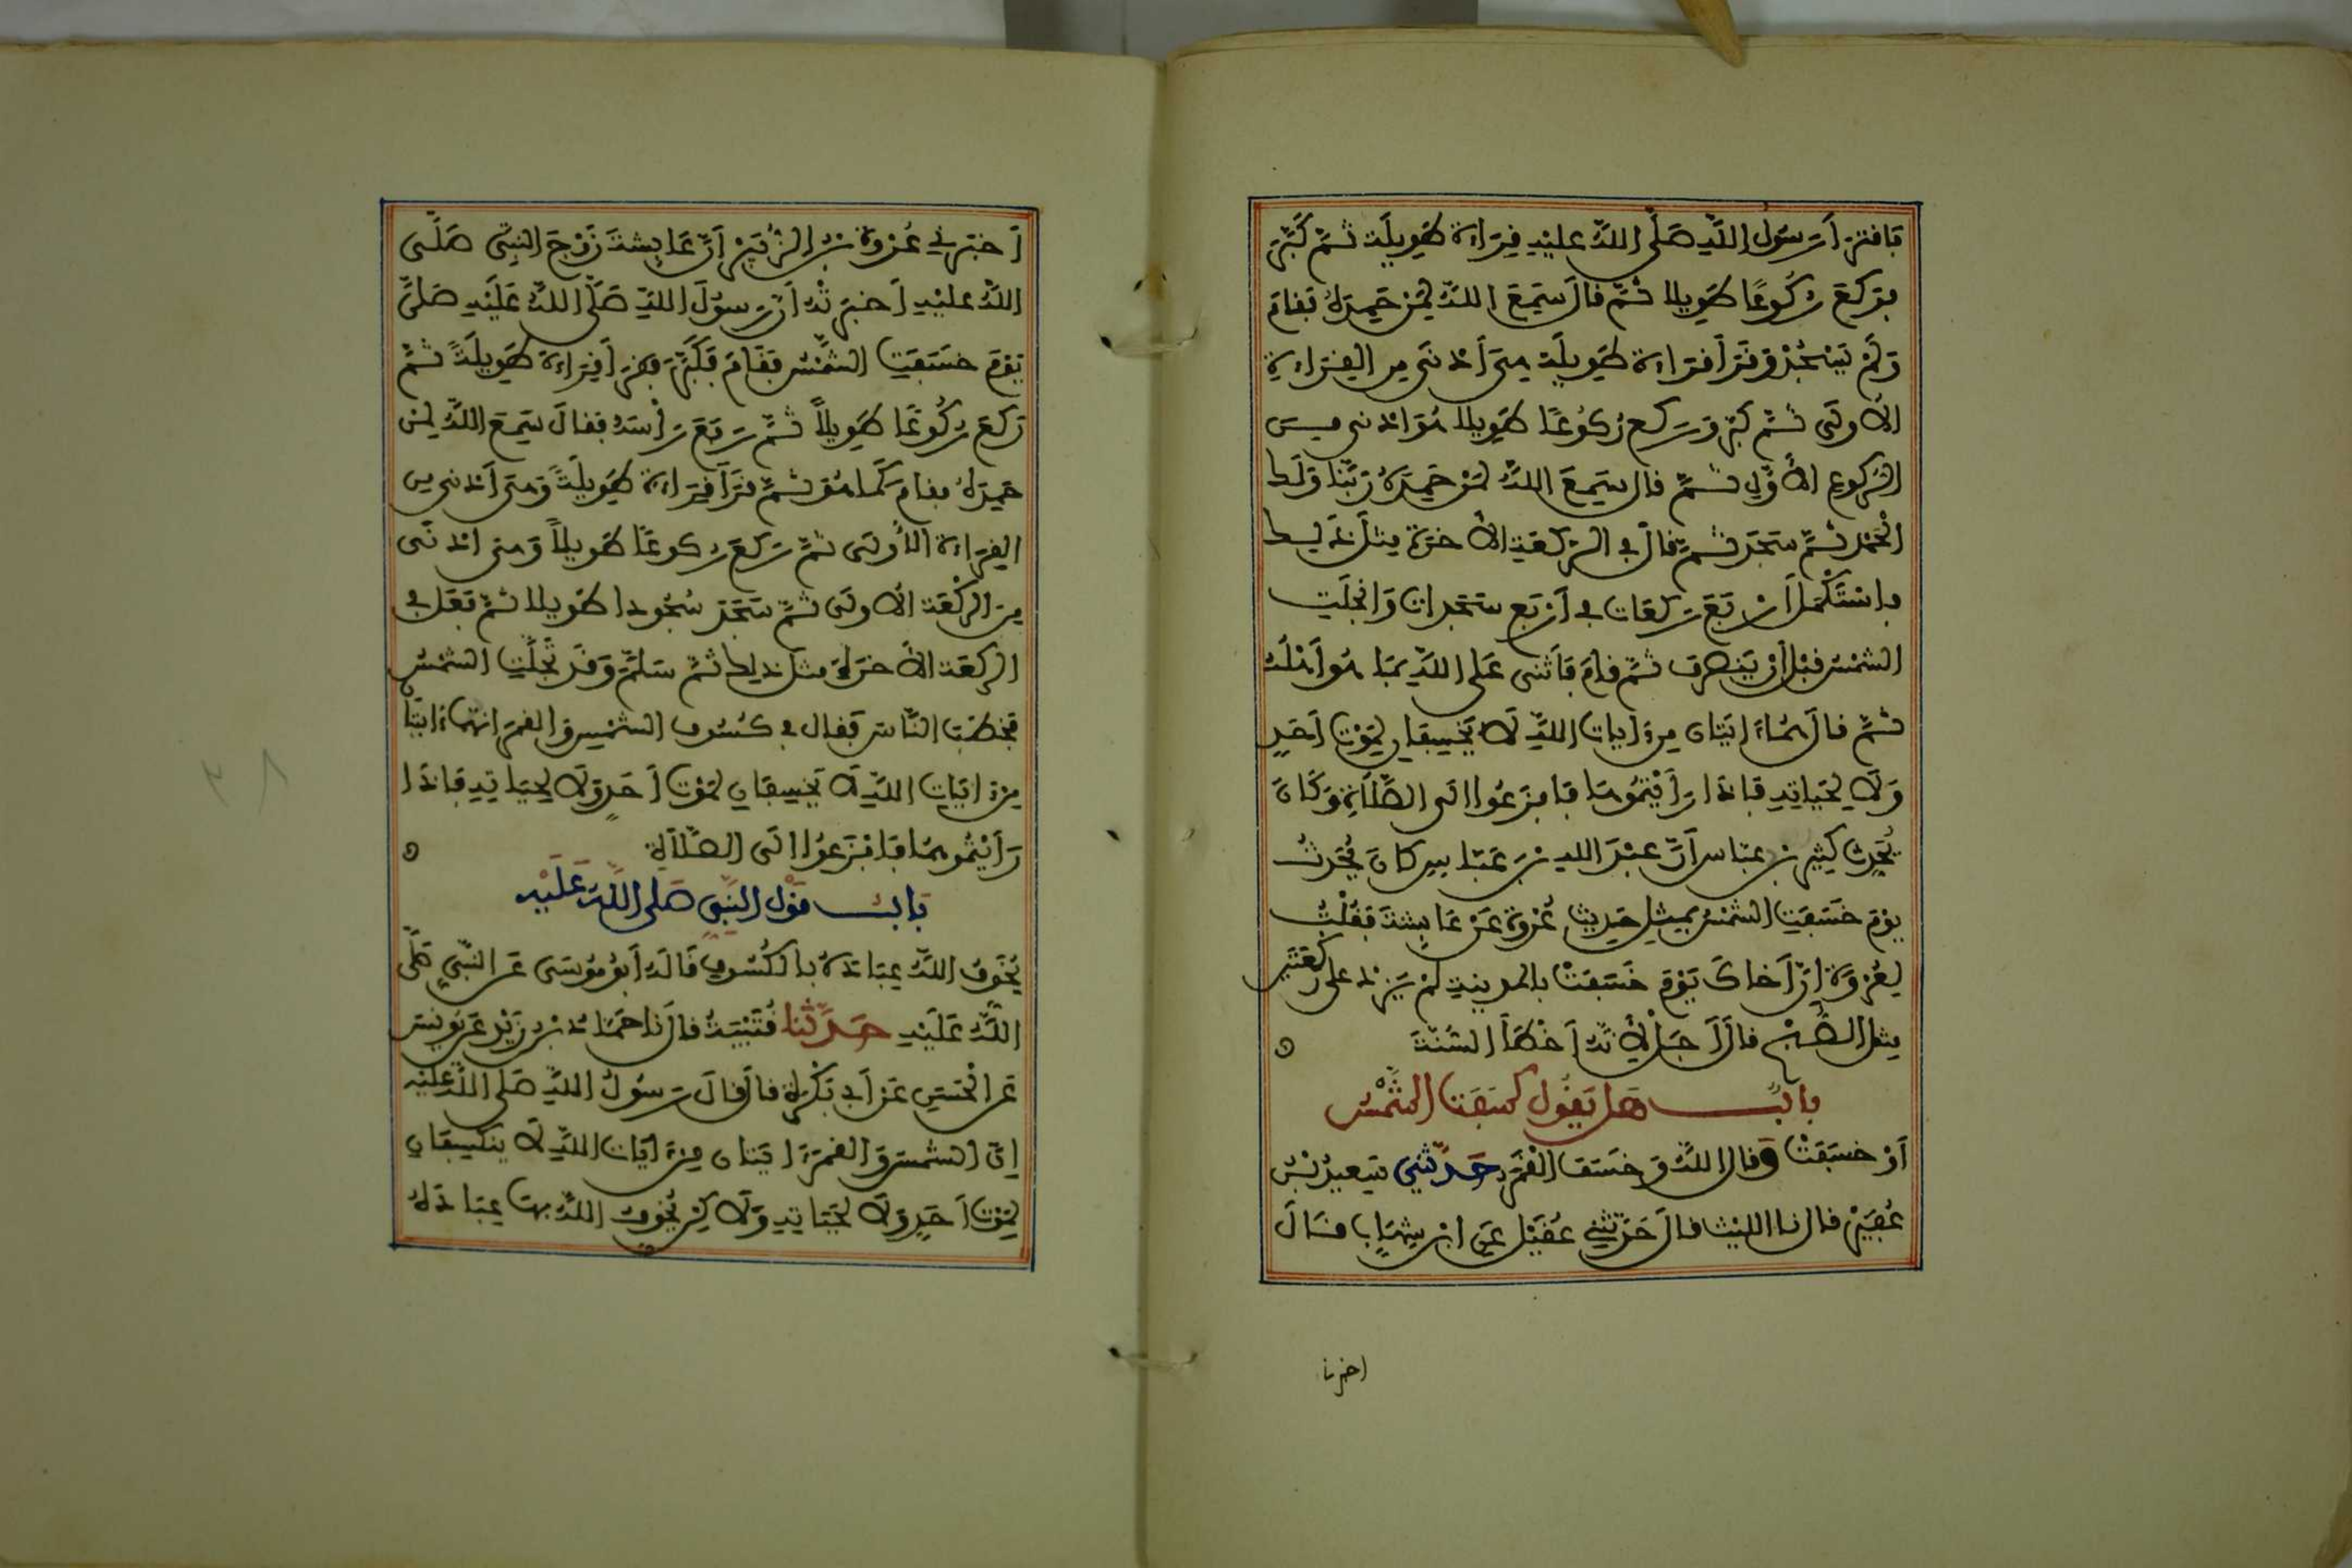 فَافْتَرَأَ رَسُولُ اللَّهِ صَلَّى اللَّهُ عَلَيْهِ قِرَاءَةً طَوِيلَةً ثُمَّ كَبَّرَ
فَرَكَعَ رُكُوعًا طَوِيلا ثُمَّ قَالَ سَمِعَ اللَّهُ لِمَنْ حَمِدَهُ فَقَامَ
وَلَمْ يَسْجُدْ وَقَرَأَ قِرَاءَةً طَوِيلَةً هِيَ أَدْنَى مِنَ القِرَاءَةِ
الأُولَى ثُمَّ كَبَّرَ وَرَكَعَ رُكُوعًا طَوِيلا هُوَ أدْنى مِنَ
الرُّكُوعِ الأَوَّلِ ثُمَّ قال سَمِعَ اللَّهُ لِمَنْ حَمِدَهُ رَبَّنَا وَلَكَ
الْحَمْدُ ثُمَّ سَجَدَ ثُمَّ قَالَ فِي الرَّكْعَةِ الأَخِرَةِ مِثْلَ ذَلِكَ
فاسْتَكْمَلَ أَرْبَعَ رَكَعَات فِي أَرْبَعِ سَجَدَاتٍ وَانْجَلَتِ
الشَّمْسُ قَبْلَ أَنْ يَنْصَرِفَ ثُمَّ قَامَ فَأَثْنَى عَلَى اللَّهِ بِمَا هُوَ أَهْلُهُ
ثُمَّ قَالَ هُمَا ءَايَتَانِ مِنْ ءَايَاتِ اللَّهِ لاَ يَخْسِفَانِ لِمَوْتِ أَحَدٍ
وَلاَ لِحَيَاتِهِ فَإِذَا رَأَيْتُمُوهُمَا فَافْزَعُوا إلَى الصَّلاَةِ وَكَانَ
يُحَدِّثُ كَثِيرُ بْنُ عَبَّاسٍ أَنَّ عَبْدَ اللهِ بْنَ عَبَّاسٍ كَانَ يُحَدِّثُ
يَوْمَ خَسَفَتِ الشَّمْسُ بِمِثْلِ حَدِيثِ عُرْوَةَ عَنْ عَائِشَةَ فَقُلْتُ
لِعُرْوَةَ إِنَّ أَخَاكَ يَوْمَ خَسَفَتْ بِالمَدِينَةِ لَمْ يَزِدْ عَلَى رَكْعَتَيْنِ
مِثْلَ الصُّبْحِ قَالَ أَجَلْ لأَنَّهُ أَخْطَأَ السُّنَّةَ
بابُ هَلْ يَقُولُ كَسَفَتِ الشَّمْسُ
أَوْ خَسَفَتْ وَقال اللَّهُ وَخَسَفَ الْقَمَرُ حَدَّثَنِي سَعِيدُ بْنُ
عُفَيْرٍ قال نا اللَّيْثُ قال حَدَّثَنِي عُقَيْلٌ عَنِ ابْنِ شِهَابٍ قَالَ
اخبرنا
أَخْبَرَنِي عُرْوَةُ بْنُ الزُّبَيْرِ أَنَّ عَائِشَةَ زَوْجَ النَّبِيِّ صَلَّى
اللَّهُ عَلَيْهِ أَخْبَرَتْهُ أَنَّ رَسُولَ اللَّهِ صَلَّى اللَّهُ عَلَيْهِ صَلَّى
يَوْمَ خَسَفَتِ الشَّمْسُ فَقَامَ فَكَبَّرَ فَقَرَأَ قِرَاءَةً طَوِيلَةً ثُمَّ
رَكَعَ رُكُوعًا طَوِيلاً ثُمَّ رَفَعَ رَأْسَهُ فَقَالَ سَمِعَ اللَّهُ لِمَنْ
حَمِدَهُ فقامَ كَمَا هُوَ ثُمَّ قَرَأَ قِرَاءَةً طَوِيلَةً وَهِيَ أَدْنى مِنَ
القِرَاءَةِ الأُولَى ثُمَّ رَكَعَ رُكوعًا طَوِيلاً وَهِيَ أَدْنَى
مِنَ الرَّكْعَةِ الأُولَى ثُمَّ سَجَدَ سُجُودا طَوِيلا ثُمَّ فَعَلَ فِي
الرَّكْعَةِ الأَخِرَةِ مِثْلَ ذَلِكَ ثُمَّ سَلَّمَ وَقَدْ تَجَلَّتِ الشَّمْسُ
فَخَطَبَ النَّاسَ فَقَالَ فِي كُسُوفِ الشَّمْسِ وَالقَمَرِ إِنَّهُمَا ءَايَتَانِ
مِنْ ءَايَاتِ اللَّهِ لاَ يَخْسِفَانِ لِمَوْتِ أَحَدٍ وَلاَ لِحَيَاتِهِ فَإِذَا
رَأَيْتُمُوهُمَا فَافْزَعُوا إلَى الصَّلاَةِ
بَابُ قَوْلِ النَّبِيِّ صَلَّى اللَّهُ عَلَيْهِ
يُخَوِّفُ اللَّهُ عِبَادَهُ بِالكُسُوفِ قَالَهُ أَبُو مُوسَى عَنِ النَّبِيِّ صَلَّى
اللَّهُ عَلَيْهِ حَدَّثَنَا قُتَيْبَةُ قال نا حَمَّادُ بْنُ زَيْدٍ عَنْ يُونُسَ
عَنِ الْحَسَنِ عَنْ أَبِي بَكْرَةَ قَالَ قَالَ رَسُولُ اللَّهِ صَلَّى اللَّهُ عَلَيْهِ
إِنَّ الشَّمْسَ وَالقَمَرَ ءَايَتَانِ مِنْ ءَايَاتِ اللَّهِ لاَ يَنْكَسِفَانِ
لِمَوْتِ أَحَدٍ وَلاَ لِحَيَاتِهِ وَلاَكِنْ يُخَوِّفُ اللَّهُ بِهَا عِبَادَهُ
٣٨